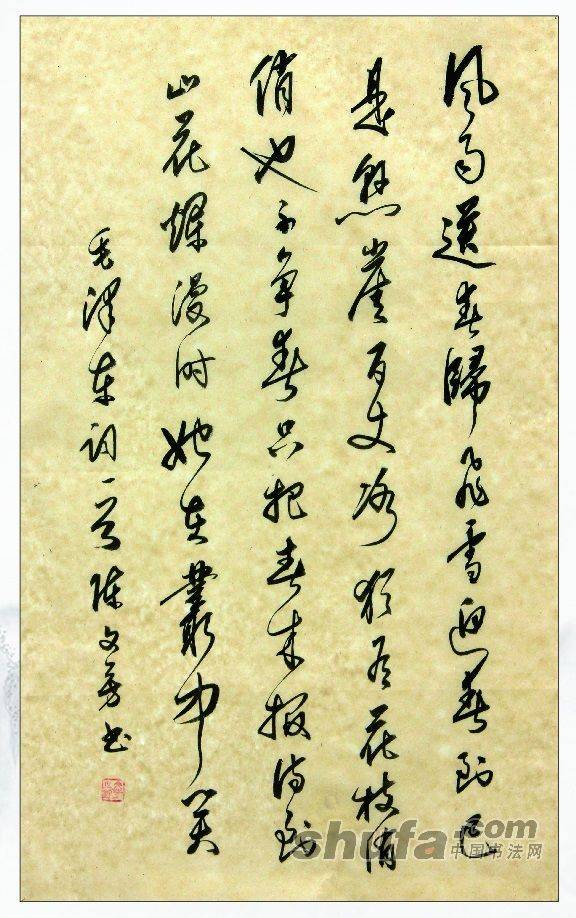 风雨送春歸飞雪迎春到已
是懸崖百丈冰犹有花枝俏
俏也不争春只把春来报待到
山花烂漫时她在叢中笑
毛泽东词一首 陈文芳书
shufa.com
中国书法网